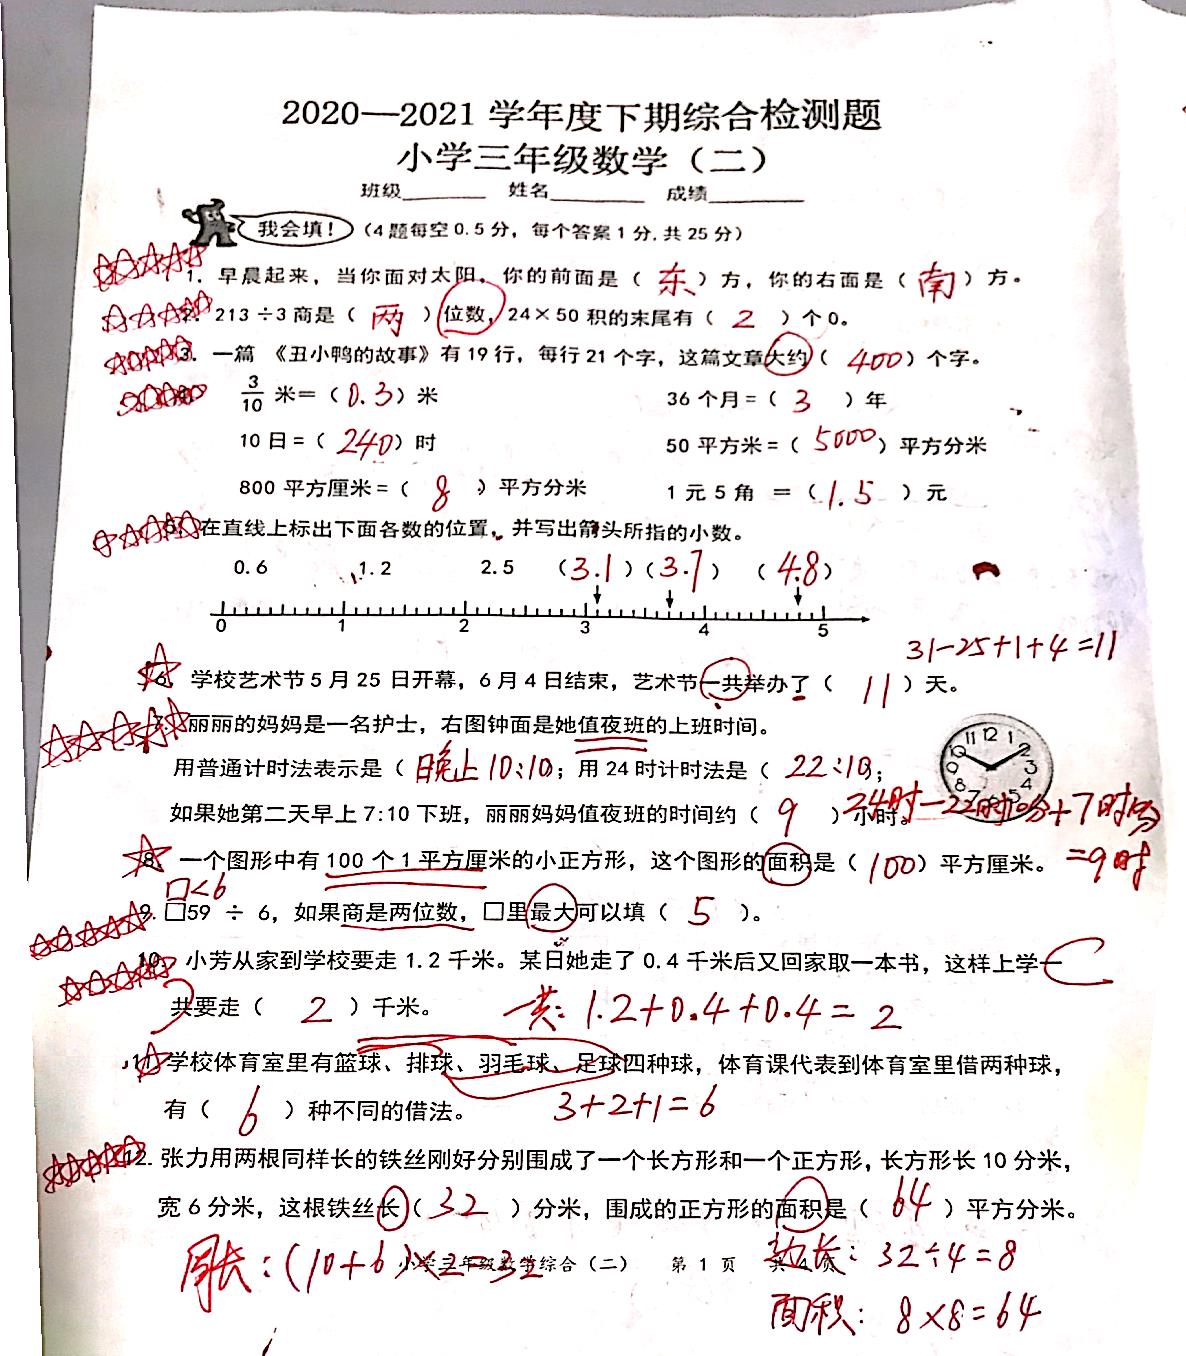 2020—2021 学年度下期综合检测题
小学三年级数学（二）
班级 姓名 成绩
我会填！（4题每空0.5分，每个答案1分,共25分）
1. 早晨起来，当你面对太阳，你的前面是（ 东 ）方，你的右面是（ 南 ）方。
2. 213÷3商是（ 两 ）位数，24×50积的末尾有（ 2 ）个0。
3. 一篇《丑小鸭的故事》有19行，每行21个字，这篇文章大约（ 400 ）个字。
3/10 米=（ 0.3 ）米 36个月=（ 3 ）年
10日=（ 240 ）时 50平方米=（ 5000 ）平方分米
800平方厘米=（ 8 ）平方分米 1元5角 =（ 1.5 ）元
5. 在直线上标出下面各数的位置，并写出箭头所指的小数。
0.6 1.2 2.5 （3.1）（3.7）（4.8）
0 1 2 3 4 5
31-25+1+4=11
6. 学校艺术节5月25日开幕，6月4日结束，艺术节一共举办了（ 11 ）天。
7. 丽丽的妈妈是一名护士，右图钟面是她值夜班的上班时间。
用普通计时法表示是（ 晚上10:10；用24时计时法是（ 22:10；
如果她第二天早上7:10下班，丽丽妈妈值夜班的时间约（ 9 ）小时。
24时-22时10分+7时10分
=9时
11 12 1 10 2 9 3 8 4 7 5
8. 一个图形中有100个1平方厘米的小正方形，这个图形的面积是（ 100 ）平方厘米。
□<6
9. □59 ÷ 6，如果商是两位数，□里最大可以填（ 5 ）。
10. 小芳从家到学校要走1.2千米。某日她走了0.4千米后又回家取一本书，这样上学一
共要走（ 2 ）千米。 一共：1.2+0.4+0.4=2
11. 学校体育室里有篮球、排球、羽毛球、足球四种球，体育课代表到体育室里借两种球，
有（ 6 ）种不同的借法。 3+2+1=6
12. 张力用两根同样长的铁丝刚好分别围成了一个长方形和一个正方形，长方形长10分米，
宽6分米，这根铁丝长（ 32 ）分米，围成的正方形的面积是（ 64 ）平方分米。
周长：(10+6)×2=32 边长：32÷4=8
小学三年级数学综合（二） 第 1 页 共 4 页
面积：8×8=64